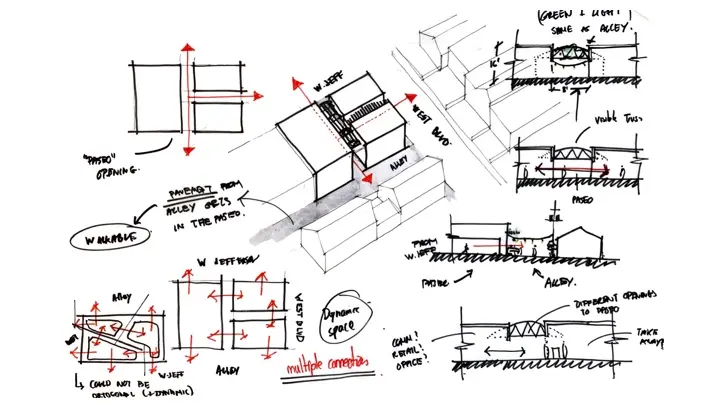 (GREEN + LIGHT)
SAME AS ALLEY.
16'
8'
W. JEFF
WEST BLVD.
ALLEY
"PASEO"
OPENING.
VISIBLE TRUSS
PASEO
PAVEMENT FROM
ALLEY GETS
IN THE PASEO.
WALKABLE
FROM
W. JEFF
PASEO
ALLEY.
W JEFFERSON
WEST BLVD
ALLEY
Alley
West
W. JEFF
COULD NOT BE
ORTOGONAL (+ DYNAMIC)
Dynamic
space
multiple connections
DIFFERENT OPENINGS
TO PASEO
COMM /
RETAIL
SPACE